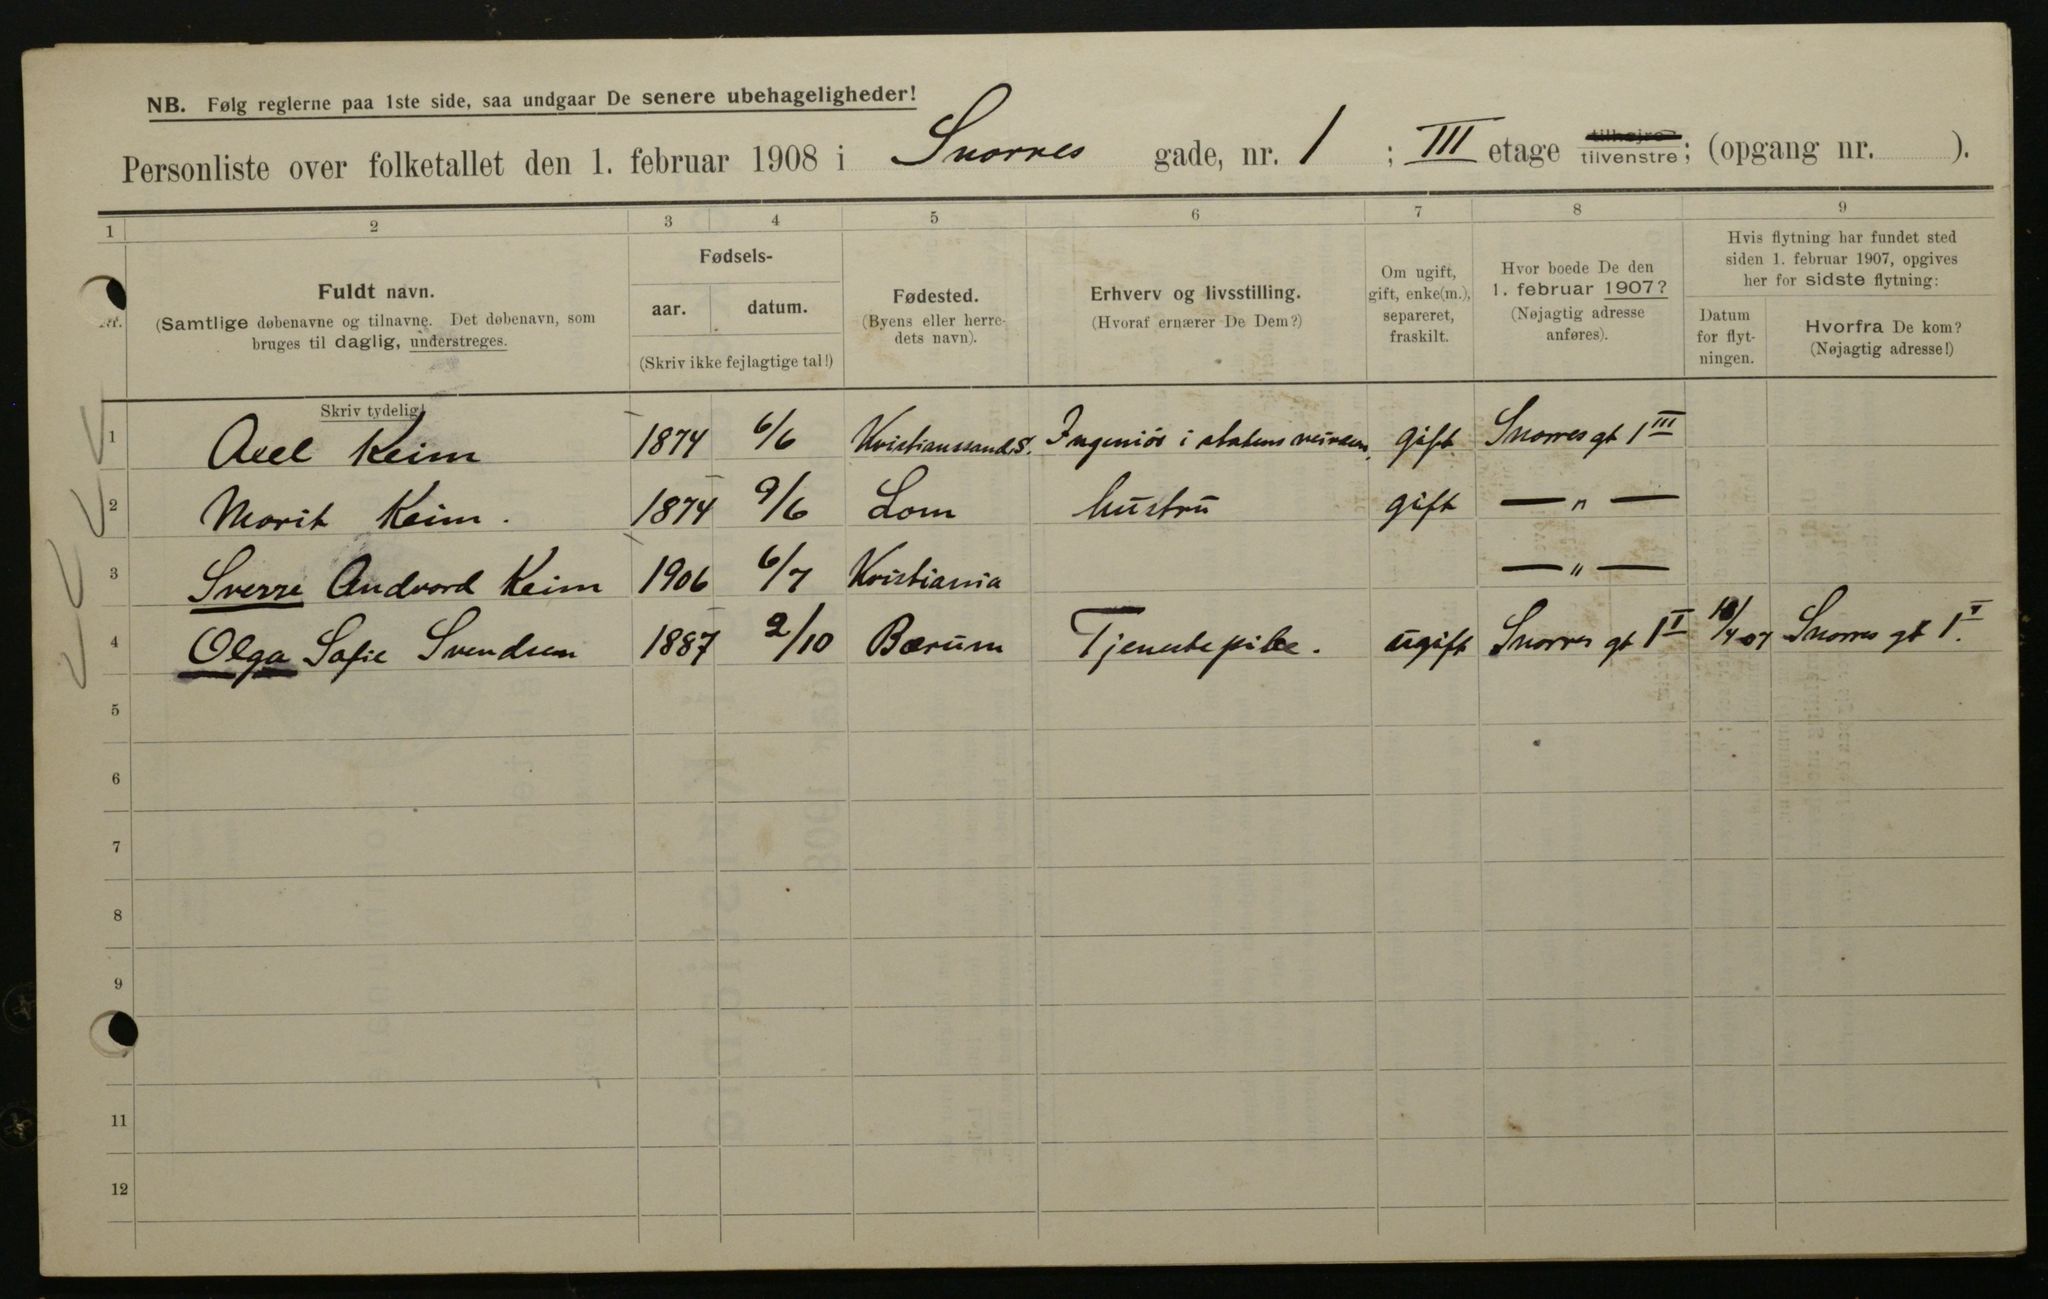 NB. Følg reglerne paa 1ste side, saa undgaar De senere ubehageligheder!
Personliste over folketallet den 1. februar 1908 i Snorres gade, nr. 1; III etage tilhøjre tilvenstre; (opgang nr. ).
1 2 3 4 5 6 7 8 9
Nr.
Fuldt navn.
(Samtlige døbenavne og tilnavne. Det døbenavn, som
bruges til daglig, understreges.
Skriv tydelig!
Fødsels-
aar. datum.
(Skriv ikke fejlagtige tal!)
Fødested.
(Byens eller herre-
dets navn).
Erhverv og livsstilling.
(Hvoraf ernærer De Dem?)
Om ugift,
gift, enke(m.),
separeret,
fraskilt.
Hvor boede De den
1. februar 1907?
(Nøjagtig adresse
anføres).
Hvis flytning har fundet sted
siden 1. februar 1907, opgives
her for sidste flytning:
Datum
for flyt-
ningen.
Hvorfra De kom?
(Nøjagtig adresse!)
1 Axel Keim 1874 6/6 Kristianssand S. Ingeniør i statens veivæsen, gift. Snorresgt 1 III
2 Marit Keim. 1874 9/6 Lom hustru gift — " —
3 Sverre Andvord Keim 1906 6/7 Kristiania — " —
4 Olga Sofie Svendsen 1887 2/10 Bærum Tjenestepike. ugift Snorres gt 1 I /4 07 Snorres gt 1 I.
5
6
7
8
9
11
12